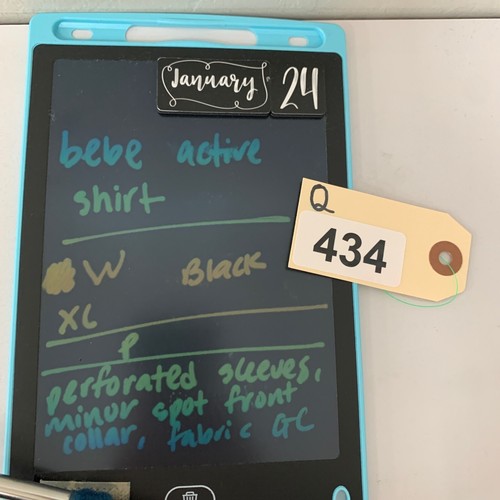 January 24
bebe active
shirt
Q
434
W Black
XL
P
perforated sleeves,
minor spot front
collar, fabric GC